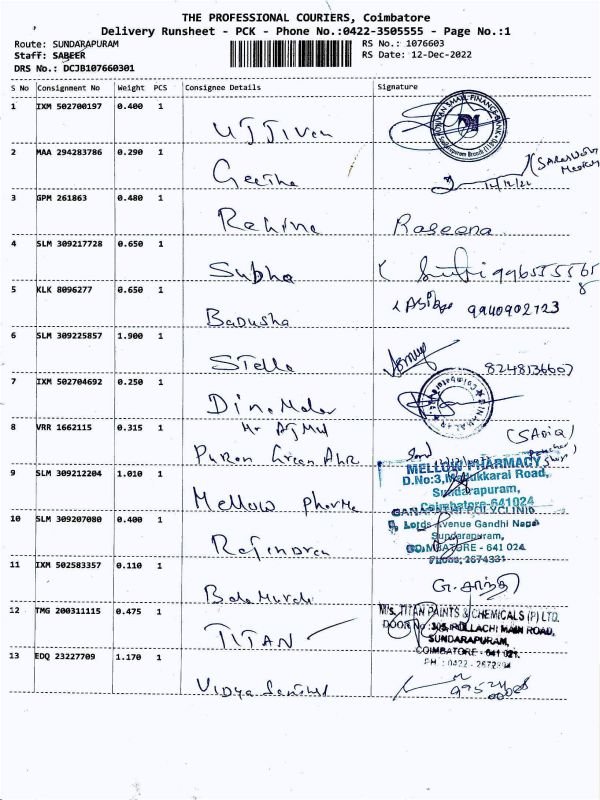 THE PROFESSIONAL COURIERS, Coimbatore
Delivery Runsheet - PCK - Phone No.:0422-3505555 - Page No.:1
Route: SUNDARAPURAM RS No.: 1076603
Staff: SABEER RS Date: 12-Dec-2022
DRS No.: DCJB107660301
S No Consignment No Weight PCS Consignee Details Signature
1 IXM 502700197 0.400 1
UJJIVan
2 MAA 294283786 0.290 1
Geetha
3 GPM 261863 0.480 1
Rehina Raseena
4 SLM 309217728 0.650 1
Subha
5 KLK 8096277 0.650 1
Badusha 9940902723
6 SLM 309225857 1.900 1
Stella 8248136607
7 IXM 502704692 0.250 1
Dina Malar
8 VRR 1662115 0.315 1
(SADIQ)
Puron Green
9 SLM 309212204 1.010 1
Mellow Pharma
MELLOW PHARMACY
D.No:3, Madukkarai Road,
Sundarapuram,
Coimbatore-641024
10 SLM 309207080 0.400 1
Rajendran
POLYCLINIC
Avenue Gandhi Nagar
Sundarapuram,
COIMBATORE - 641 024.
Phone: 2674331
11 IXM 502583357 0.110 1
Bala Murali G. சாந்தி
12 TMG 200311115 0.475 1
TITAN
M/s. TITAN PAINTS & CHEMICALS (P) LTD.
DOOR No: 305, POLLACHI MAIN ROAD,
SUNDARAPURAM,
COIMBATORE - 641 021.
PH : 0422 -
13 EDQ 23227709 1.170 1
Vidya